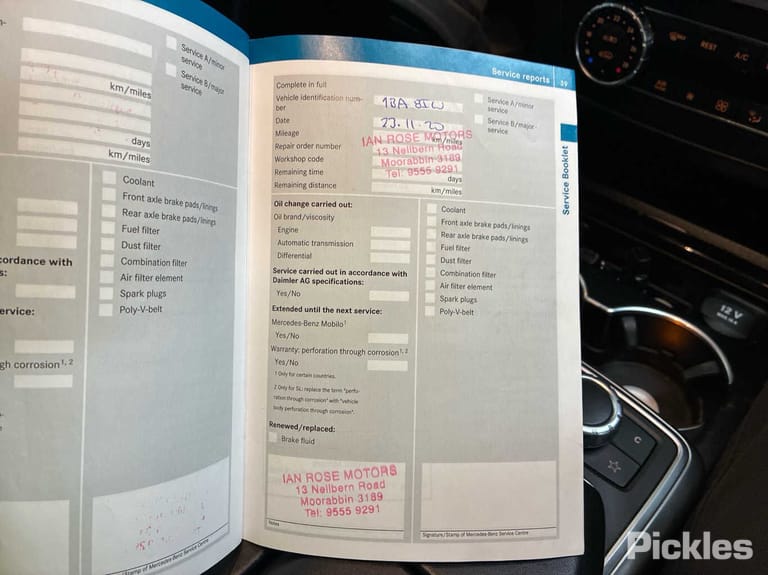 Service A/minor
service
Service B/major
service
km/miles
days
km/miles
Coolant
Front axle brake pads/linings
Rear axle brake pads/linings
Fuel filter
Dust filter
Combination filter
Air filter element
Spark plugs
Poly-V-belt
cordance with
s:
ervice:
gh corrosion1, 2
/Stamp of Mercedes-Benz Service Centre
Service reports 39
Complete in full
Vehicle identification num-
ber
Date 23.11.20
Mileage km/miles
Repair order number
Workshop code
Remaining time days
Remaining distance km/miles
IAN ROSE MOTORS
13 Neilbern Road
Moorabbin 3189
Tel: 9555 9291
Service A/minor
service
Service B/major
service
Service Booklet
Oil change carried out:
Oil brand/viscosity
Engine
Automatic transmission
Differential
Service carried out in accordance with
Daimler AG specifications:
Yes/No
Extended until the next service:
Mercedes-Benz Mobilo1
Yes/No
Warranty: perforation through corrosion1, 2
Yes/No
1 Only for certain countries.
2 Only for SL: replace the term "perfo-
ration through corrosion" with "vehicle
body perforation through corrosion".
Renewed/replaced:
Brake fluid
Coolant
Front axle brake pads/linings
Rear axle brake pads/linings
Fuel filter
Dust filter
Combination filter
Air filter element
Spark plugs
Poly-V-belt
IAN ROSE MOTORS
13 Neilbern Road
Moorabbin 3189
Tel: 9555 9291
Notes
Signature/Stamp of Mercedes-Benz Service Centre
REST
A/C
12 V
C
Pickles